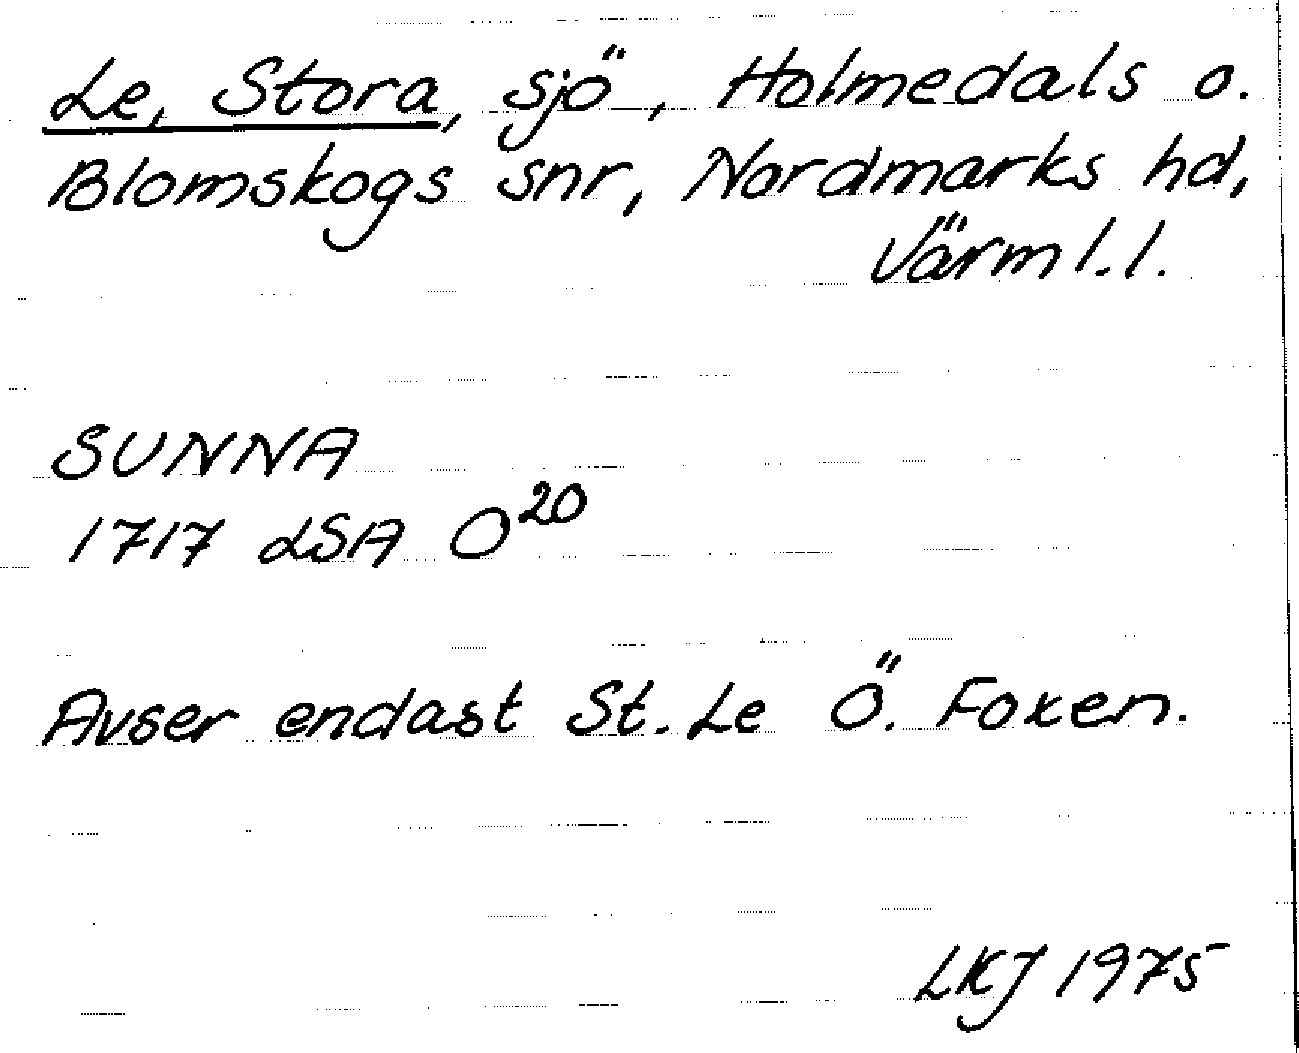 Le, Stora, sjö, Holmedals o.
Blomskogs snr, Nordmarks hd,
Värml. l.
SUNNA
1717 LSA O²⁰
Avser endast St. Le Ö. Foxen.
LKJ 1975